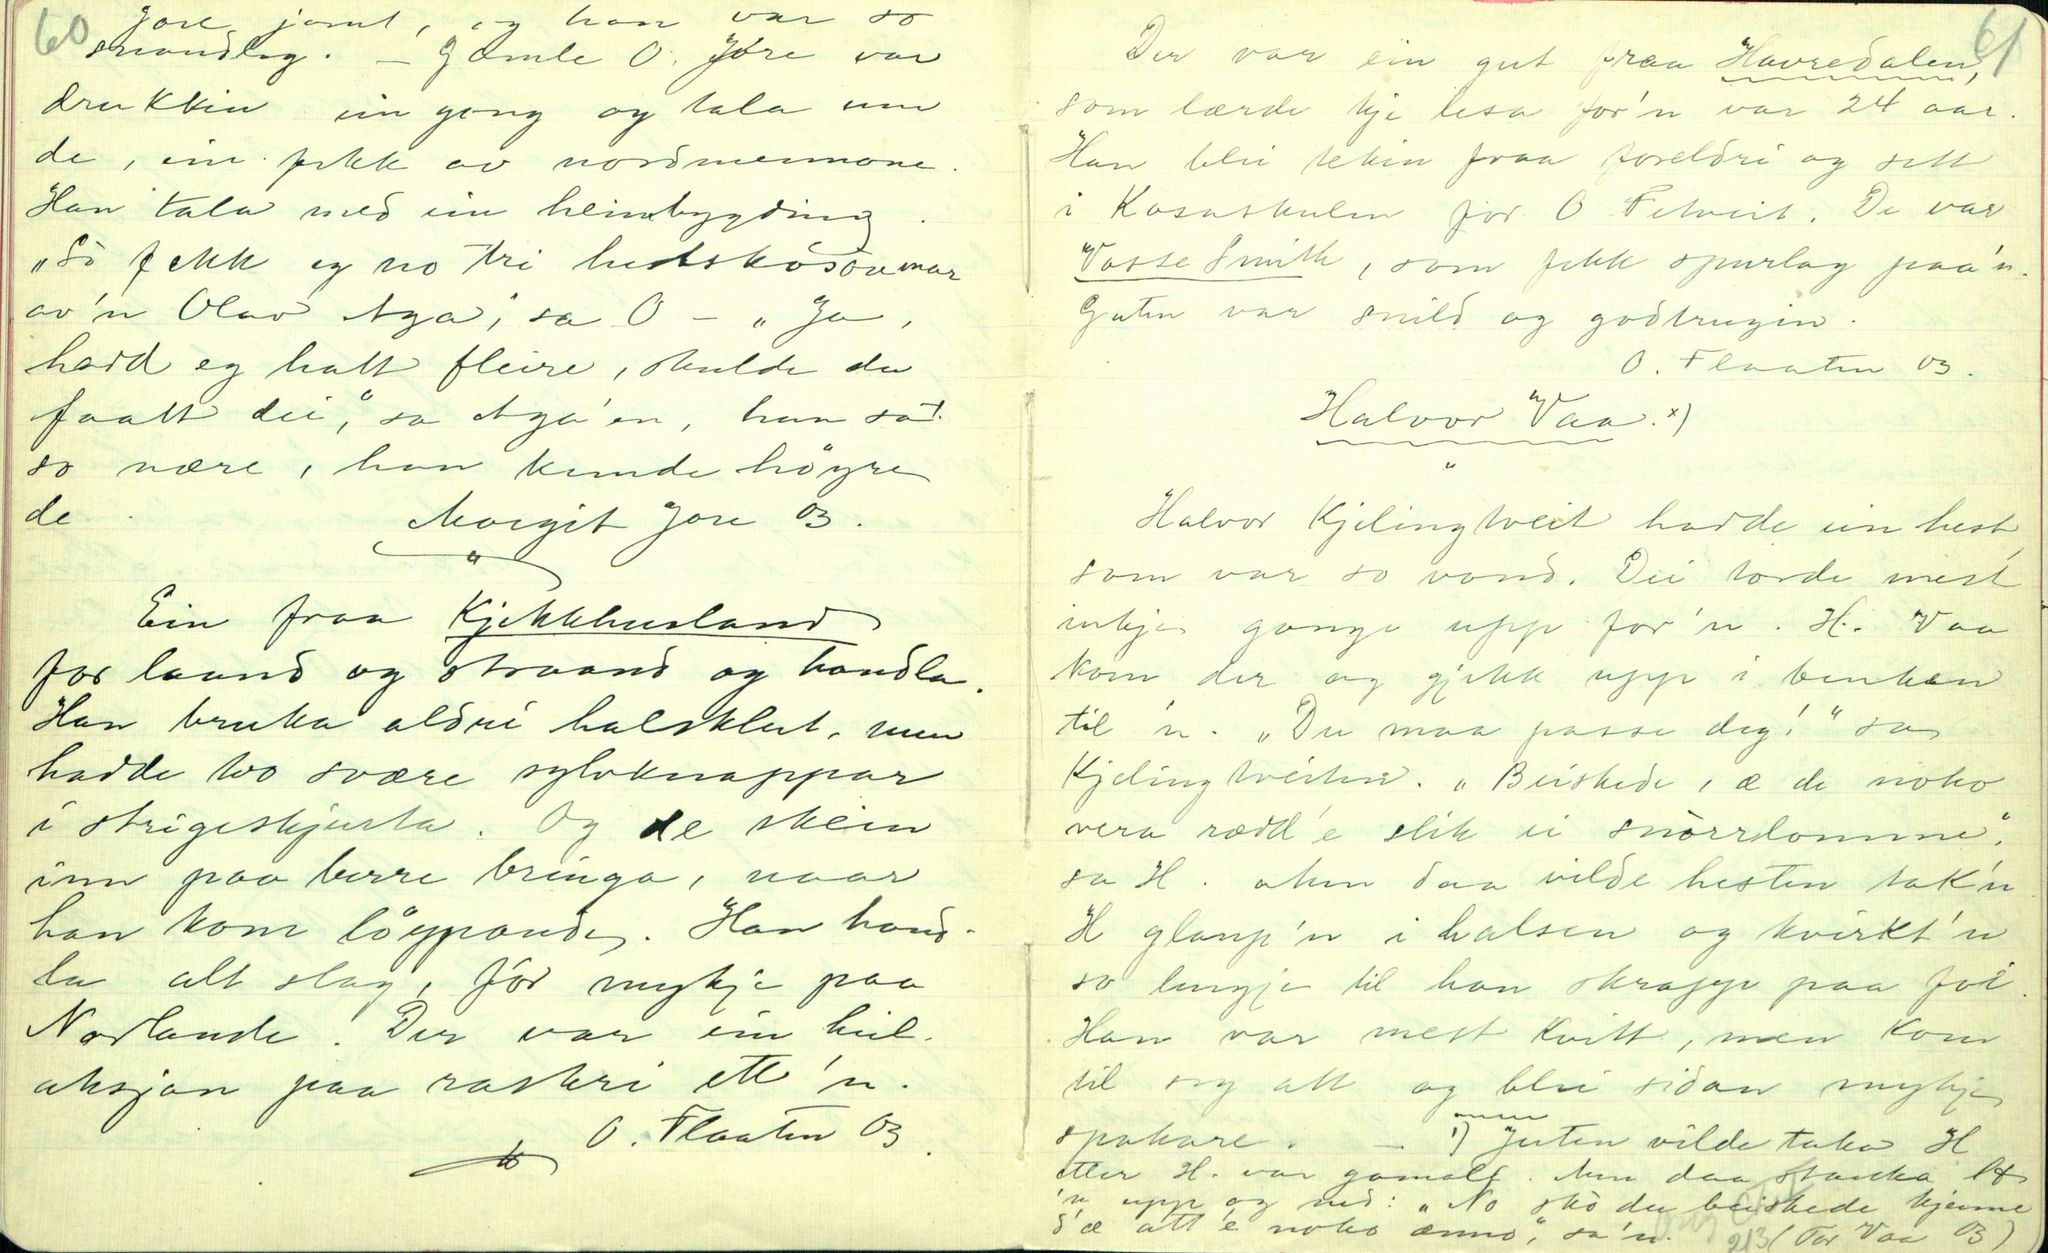 60
Jore jamt, og han var so
snaudleg. — Gamle O. Jore var
drukkin ein gong og tala um
de, ein fekk av nordmennane.
Han tala med ein heimbygding.
"So fekk eg no tri hestskosaumar
av'n Olav Aga," sa O — "Ja,
hadd eg hatt fleire, skulde du
faatt dei," sa Aga'en, han sat
so nære, han kunde höyre
de. Margit Jore 03.
Ein fraa Kjekkhusland
for laand og straand og handla.
Han bruka aldri halsklut, men
hadde two svære sylvknappar
i strigeskjurta. Og de skein
inn paa berre bringa, naar
han kom löypande. Han hand-
la alt slag, fór mykje paa
Norlande. Der var ein heil
aksjon paa raskeri ett'n.
O. Flaaten 03.
61
Der var ein gut fraa Havredalen,
som lærde kje lesa for'n var 24 aar.
Han blei tekin fraa foreldri og sett
i Kosaskulen for O Fetveit. De var
Vosse Smith, som fekk spurlag paa'n.
Guten var snild og godtrugin.
O. Flaaten 03.
Halvor Vaa. x)
Halvor Kjelingtveit hadde ein hest,
som var so vond. Dei torde mest
inkje gange upp for'n. H. Vaa
kom der og gjekk upp i benken
til 'n. "Du maa passe deg!" sa
Kjelingtveiten. "Beiskede, æ de noko
vera rædd'e slik ei snorrlomme",
sa H. Men daa vilde hesten tak'n
H glaup'n i halsen og kvirkt'n
so lengje til han skrapp paa foi.
Han var mest kvitt, men kom
til seg att og blei sidan mykje
spakare. — 1) Juten vilde taka H
etter H. var gamall. Men daa stauka H
'n upp og ned: "No sko du beiskede kjenne
d'æ att'e noko ænno," sa'n.
213 (Tor Vaa 03)